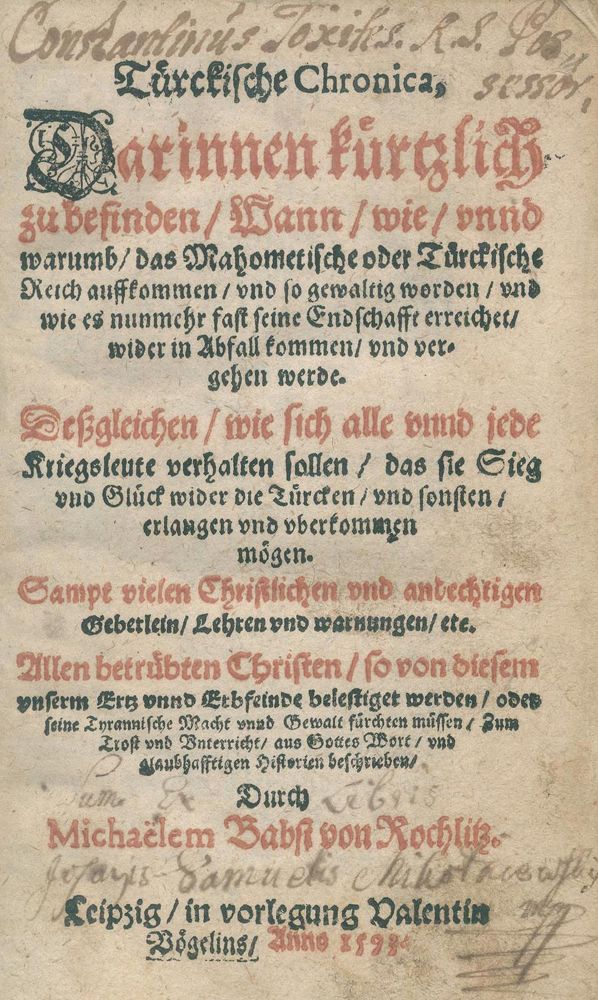 Constantinus Toxites. R. S. Pos
sessor,
Türckische Chronica,
Darinnen kürtzlich
zu befinden / Wann / wie / vnnd
warumb / das Mahometische oder Türckische
Reich auffkommen / vnd so gewaltig worden / vnd
wie es nunmehr fast seine Endschafft erreichet /
wider in Abfall kommen / vnd ver-
gehen werde.
Deßgleichen / wie sich alle vnnd jede
Kriegsleute verhalten sollen / das sie Sieg
vnd Glück wider die Türcken / vnd sonsten /
erlangen vnd vberkommen
mögen.
Sampt vielen Christlichen vnd andechtigen
Gebetlein / Lehren vnd warnungen / etc.
Allen betrübten Christen / so von diesem
vnserm Ertz vnnd Erbfeinde belestiget werden / oder
seine Tyrannische Macht vnnd Gewalt fürchten müssen / Zum
Trost vnd Vnterricht / aus Gottes Wort / vnd
glaubhafftigen Historien beschrieben /
Sum Ex Libris
Durch
Michaëlem Babst von Rochlitz.
Samuelis
Leipzig / in vorlegung Valentin
Vögelins / Anno